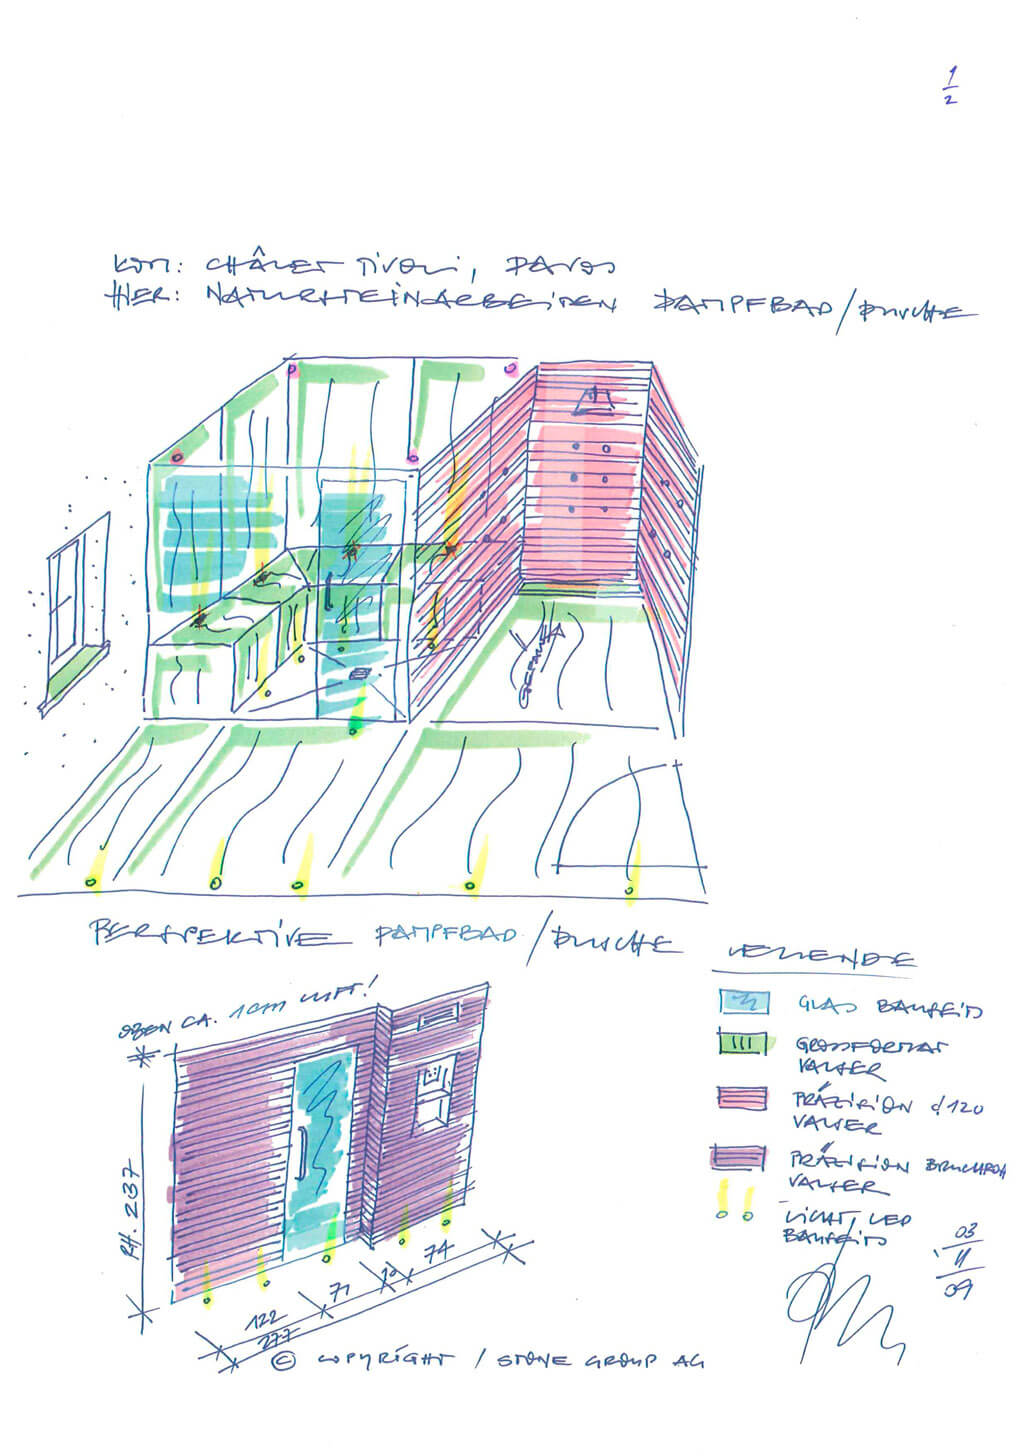 1/2
KOM: CHÂLET TIVOLI, DAVOS
HIER: NATURSTEINARBEITEN DAMPFBAD/DUSCHE
GEFÄLLE
PERSPEKTIVE DAMPFBAD/DUSCHE
LEGENDE
OBEN CA. 1cm LUFT!
GLAS BAUSEITS
GROSSFORMAT
VALSER
PRÄZISION C120
VALSER
PRÄZISION BRUCHROH
VALSER
LICHT, LED
BAUSEITS
RH. 237
122 71 10 74
277
03
11
09
© COPYRIGHT / STONE GROUP AG